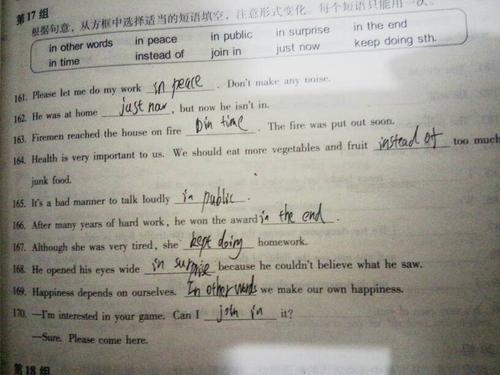 第17组
根据句意，从方框中选择适当的短语填空，注意形式变化。每个短语只能用一次。
in other words in peace in public in surprise in the end
in time instead of join in just now keep doing sth.
161. Please let me do my work in peace. Don't make any noise.
162. He was at home just now, but now he isn't in.
163. Firemen reached the house on fire in time. The fire was put out soon.
164. Health is very important to us. We should eat more vegetables and fruit instead of too much
junk food.
165. It's a bad manner to talk loudly in public.
166. After many years of hard work, he won the award in the end.
167. Although she was very tired, she kept doing homework.
168. He opened his eyes wide in surprise because he couldn't believe what he saw.
169. Happiness depends on ourselves. In other words we make our own happiness.
170. —I'm interested in your game. Can I join in it?
—Sure. Please come here.
第18组